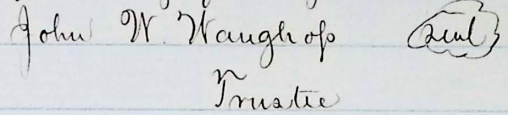 John W. Waughop Seal
Trustee